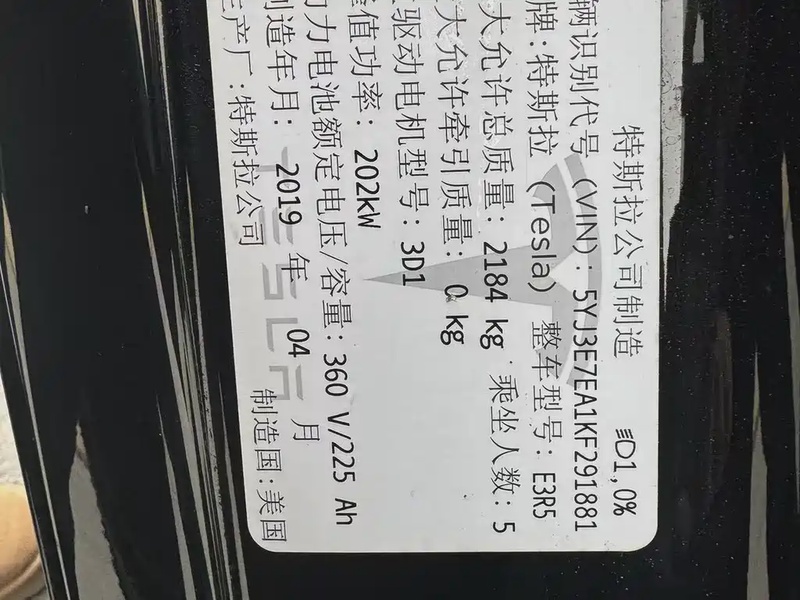 特斯拉公司制造 1,0%
辆识别代号 (VIN): 5YJ3E7EA1KF291881
牌: 特斯拉 (Tesla) 整车型号: E3R5
大允许总质量: 2184 kg 乘坐人数: 5
大允许牵引质量: 0 kg
驱动电机型号: 3D1
值功率: 202kW
力电池额定电压/容量: 360 V/225 Ah
制造年月: 2019 年 04 月
生产厂: 特斯拉公司 制造国: 美国
TESLA